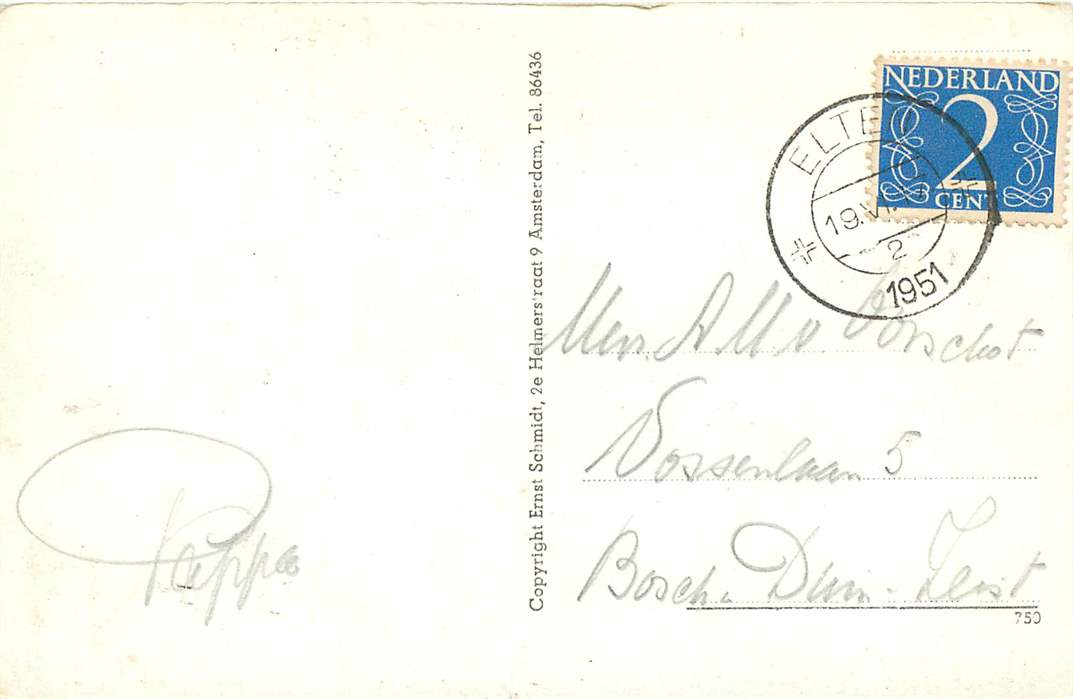 Pappa
Copyright Ernst Schmidt, 2e Helmers'raat 9 Amsterdam, Tel. 86436
NEDERLAND
2
CENT
ELTEN
19.VI.
2
1951
Mevr. A M v. Oorschot
Vossenlaan 5
Bosch. Duin. Zeist
750